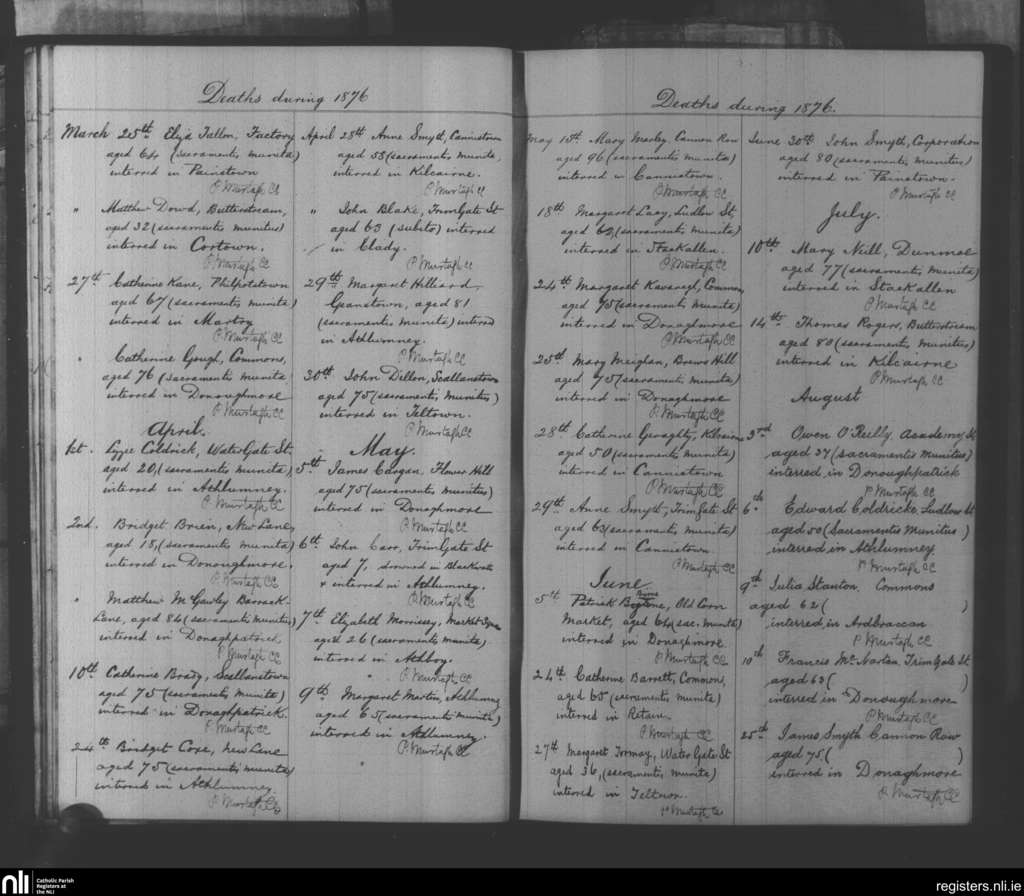 Deaths during 1876
March 25th Eliza Fallon, Factory
aged 64 (sacramentis munita)
interred in Painstown
P Murtagh CC
" Matthew Dowd, Butterstream,
aged 32 (sacramentis munitus)
interred in Cortown.
P Murtagh CC
27th Catherine Kane, Philpotstown
aged 67 (sacramentis munita)
interred in Martry
P Murtagh CC
" Catherine Gough, Commons,
aged 76 (sacramentis munita
interred in Donoughmore
P Murtagh CC
April.
1st. Lizzie Coldrick, WaterGate St.
aged 20, (sacramentis munita)
interred in Athlumney.
P Murtagh CC
2nd. Bridget Brien, New Lane,
aged 18, (sacramentis munita)
interred in Donoughmore.
P Murtagh CC
" Matthew McGawley Barrack
Lane, aged 86 (sacramentis munitus)
interred in Donaghpatrick
P Murtagh CC
10th Catherine Brady, Scallanstown
aged 75 (sacramentis munita)
interred in Donaghpatrick.
P Murtagh CC
24th Bridget Coxe, New Lane
aged 75 (sacramentis munita)
interred in Athlumney
P Murtagh CC
April 28th Anne Smyth, Cannistown
aged 55 (sacramentis munita,
interred in Kilcairne.
P Murtagh CC
" John Blake, TrimGate St
aged 63 (subito) interred
in Clady.
P Murtagh CC
29th Margaret Hilliard,
aged 81
(sacramentis munita) interred
in Athlumney.
P Murtagh CC
30th John Dillon, Scallanstown
aged 75 (sacramentis munitus)
interred in Teltown.
P Murtagh CC
May.
5th James Gargan, Flower Hill
aged 75 (sacramentis munitus)
interred in Donaghmore
P Murtagh CC
6th John Carr, TrimGate St
aged 7, drowned in Blackwater
& interred in Athlumney.
P Murtagh CC
7th Elizabeth Morrissey, Market Square
aged 26 (sacramentis munita)
interred in Athboy.
P Murtagh CC
9th Margaret Martin, Athlumney
aged 65 (sacramentis munita)
interred in Athlumney.
P Murtagh CC
Deaths during 1876.
May 15th Mary Manley, Cannon Row
aged 96 (sacramentis munita)
interred in Cannistown
P Murtagh CC
18th Margaret Lacy, Ludlow St,
aged 63 (sacramentis munita)
interred in Stackallen
P Murtagh CC
24th Margaret Kavanagh, Commons,
aged 75 (sacramentis munita)
interred in Donaghmore
P Murtagh CC
25th Mary Meighan, Brews Hill
aged 75 (sacramentis munita)
interred in Donaghmore
P Murtagh CC
28th Catherine Geraghty, Kilcairne
aged 50 (sacramentis munita)
interred in Cannistown
P Murtagh CC
29th Anne Smyth, TrimGate St
aged 63 (sacramentis munita)
interred in Cannistown
P Murtagh CC
June
Byrne
5th Patrick Old Corn
Market, aged 64 (sac. munitus)
interred in Donaghmore
P Murtagh CC
24th Catherine Barrett, Commons,
aged 65 (sacramentis munita)
interred in Retain.
P Murtagh CC
27th Margaret Tormay, WaterGate St
aged 36, (sacramentis munita)
interred in Teltown.
P Murtagh CC
June 30th John Smyth, Corporation
aged 80 (sacramentis munitus)
interred in Painstown.
P Murtagh CC
July.
10th Mary Neill, Dunmoe
aged 77 (sacramentis munita)
interred in Stackallen
P Murtagh CC
14th Thomas Rogers, Butterstream
aged 80 (sacramentis munitus)
interred in Kilcairne
P Murtagh CC
August
3rd Owen O'Reilly, Academy St
aged 37 (sacramentis munitus)
interred in Donoughpatrick
P Murtagh CC
6th Edward Coldricke, Ludlow St
aged 50 (Sacramentis Munitus )
interred in Athlumney
P Murtagh CC
9th Julia Stanton. Commons
aged 62 ( )
interred in Ardbraccan
P Murtagh CC
10th Francis McNorton TrimGate St
aged 63 ( )
interred in Donoughmore
P Murtagh CC
25th James Smyth Cannon Row
aged 75 ( )
interred in Donaghmore
P Murtagh CC
nli
Catholic Parish
Registers at
the NLI
registers.nli.ie